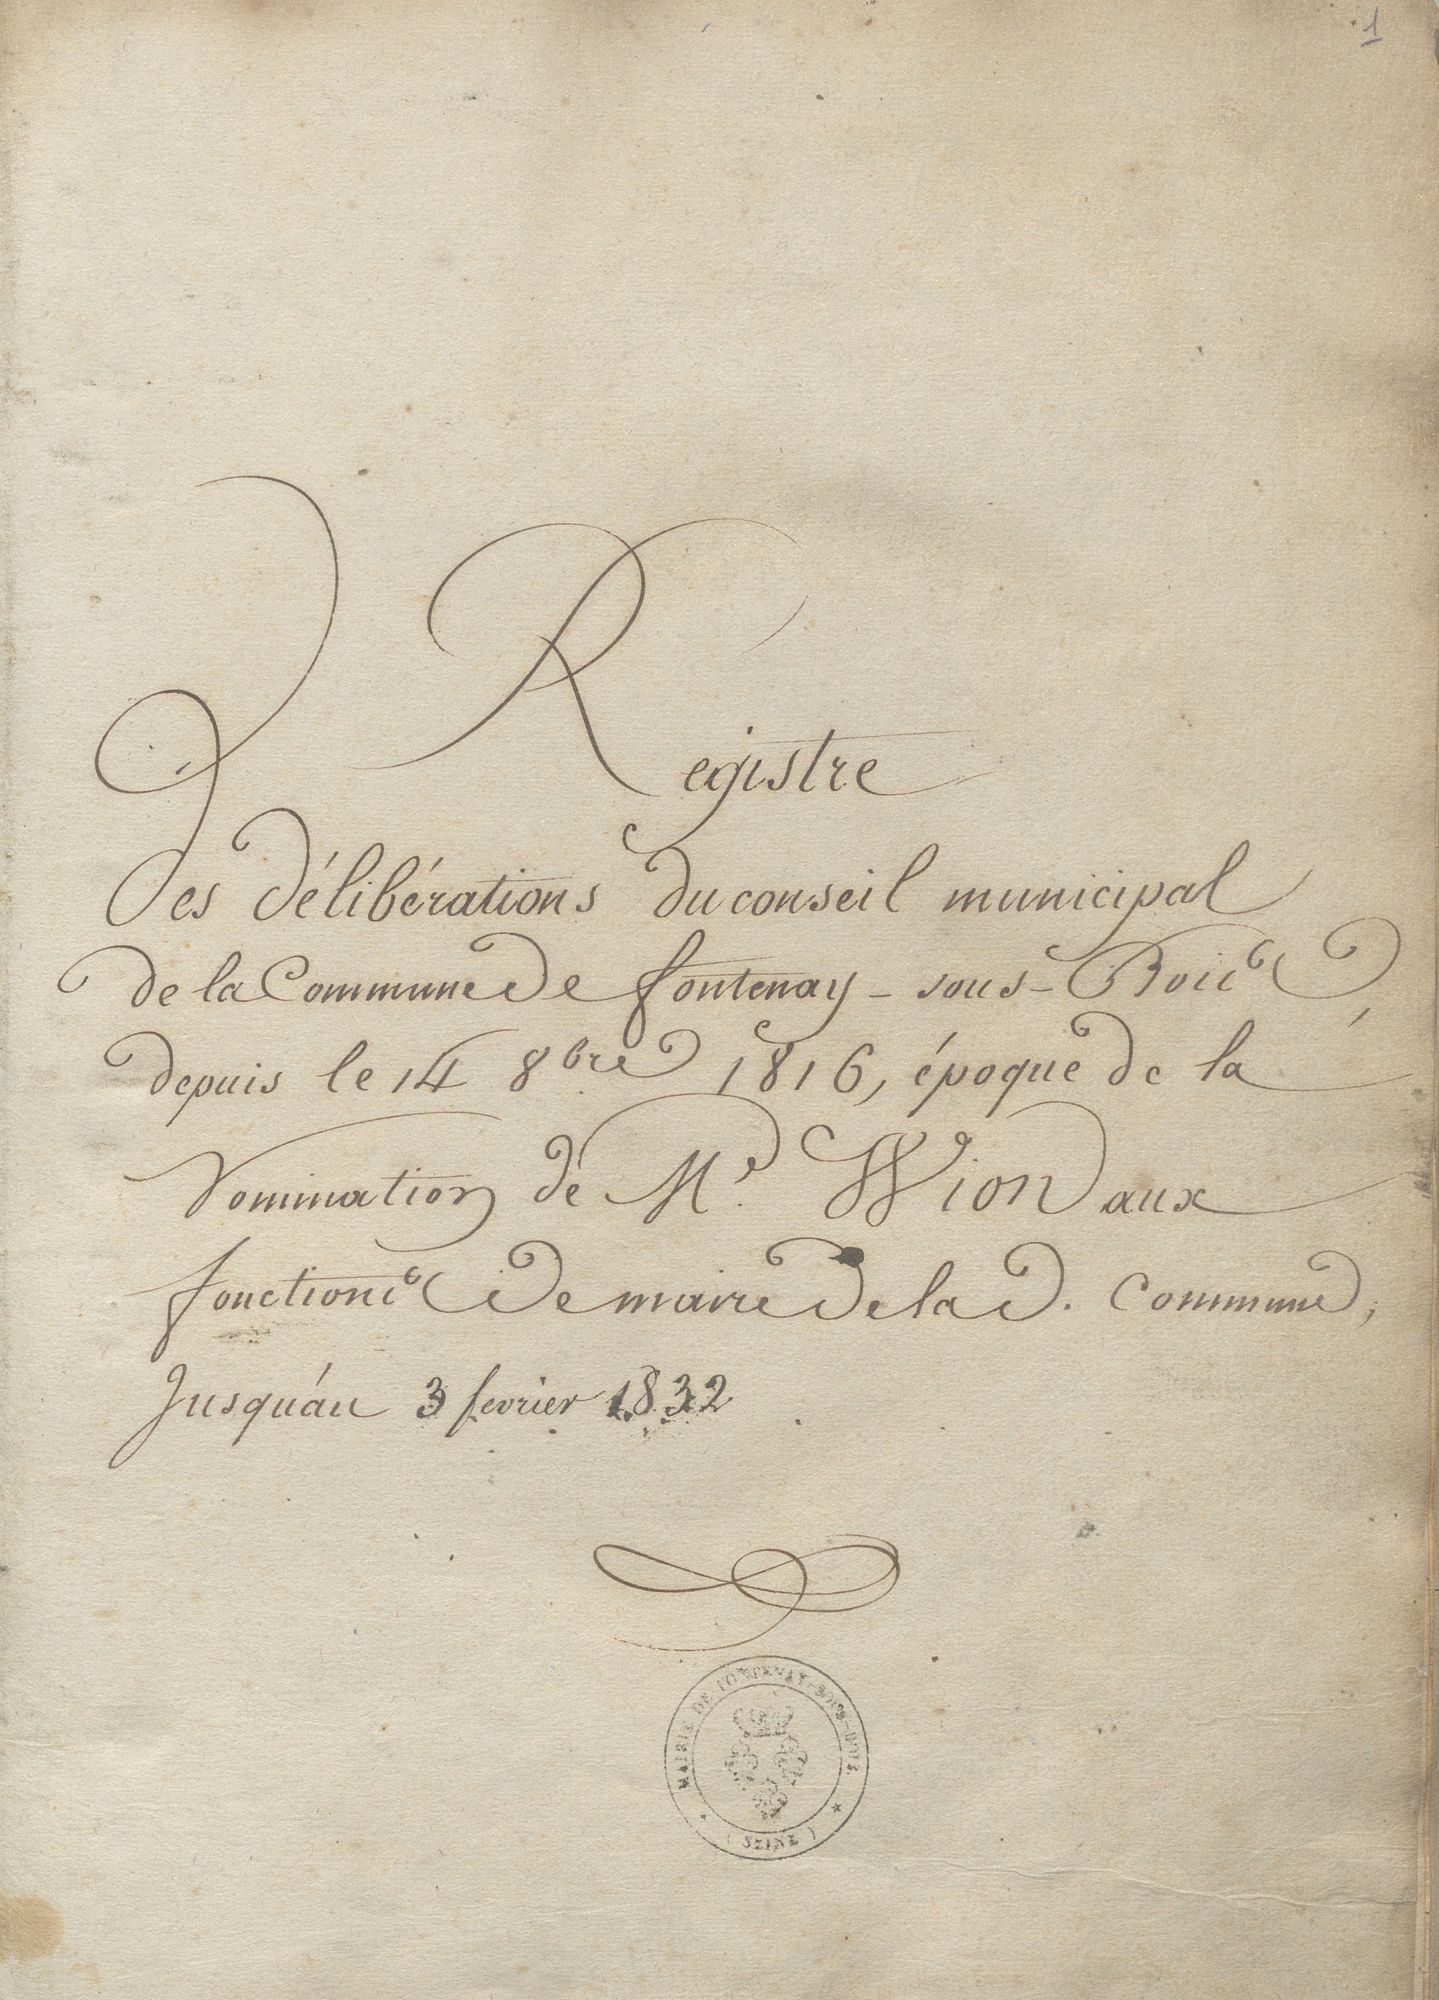 1
Registre
Des délibérations du conseil municipal
de la Commune de fontenay-sous-Bois
depuis le 14 8bre 1816, époque de la
Nomination de Mr. Wion aux
fonctions de maire de la d. Commune,
Jusqu'au 3 fevrier 1832
MAIRIE DE FONTENAY-SOUS-BOIS
(SEINE)